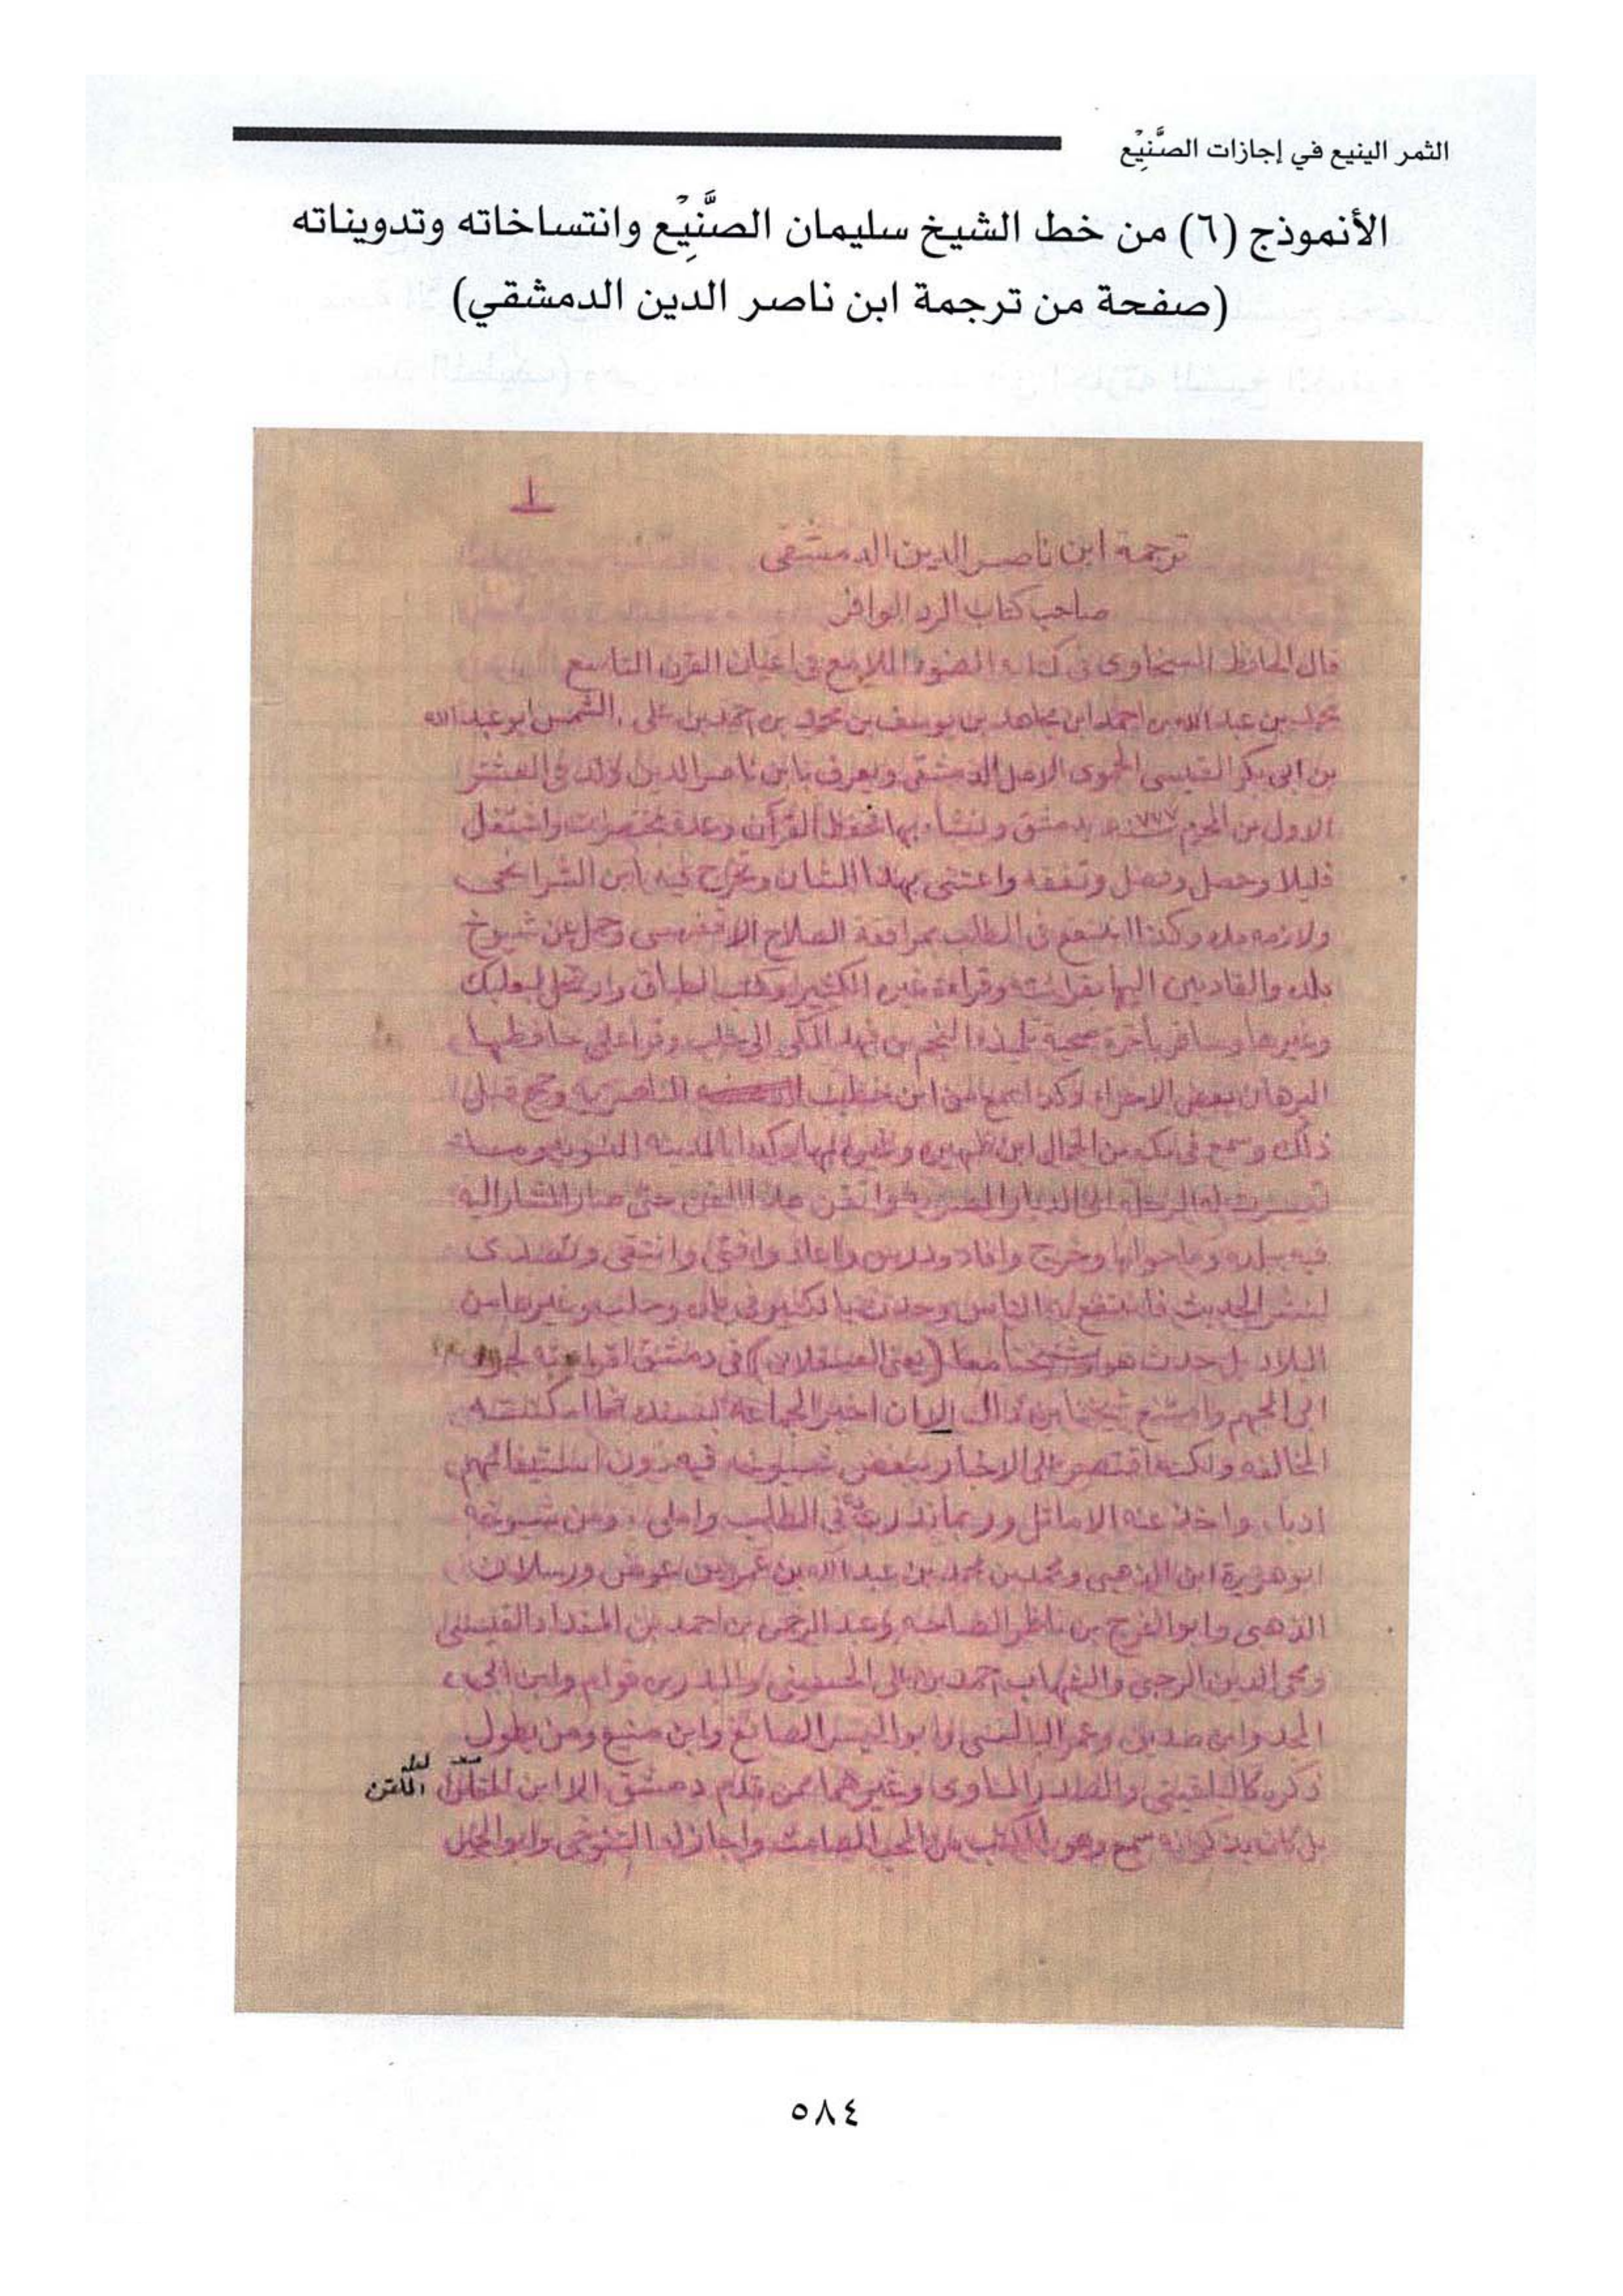 الثمر الينيع في إجازات الصَّنِيْع
الأنموذج (٦) من خط الشيخ سليمان الصَّنِيْع وانتساخاته وتدويناته
(صفحة من ترجمة ابن ناصر الدين الدمشقي)
١
ترجمة ابن ناصر الدين الدمشقي
صاحب كتاب الرد الوافر
قال الحافظ السخاوى فى كتابه الضوء اللامع فى اعيان القرن التاسع
محمد بن عبد الله بن احمد ابن مجاهد بن يوسف بن محمد بن احمد بن على . الشمس ابو عبد الله
بن ابى بكر القيسى الحموى الاصل الدمشقى ويعرف بابن ناصر الدين ولد فى العشر
الاول من المحرم سنة ٧٧٧ بدمشق ونشأ بها فحفظ القرآن وعدة مختصرات واشتغل
قليلا وحصل وفضل وتفقه واعتنى بهذا الشان وتخرج فيه بابن الشرايحى
ولازمه مدة وكذا انتفع فى الطلب بمرافقة الصلاح الاقفهسى وحمل عن شيوخ
بلده والقادمين اليها بقراءته وقراءة غيره الكثير وكتب الطباق وارتحل لبعلبك
وغيرها وسافر بأخرة صحبة تلميذه النجم بن فهد المكى الى حلب وقرأ على حافظها
البرهان بعض الاجزاء وكذا سمع من ابن خطيب الناصرية وحج قبل
ذلك وسمع فى مكة من الجمال ابن ظهيرة وغيره بها وكذا بالمدينة النبوية وما
تيسرت له الرحلة الى الديار المصرية واتقن هذا الفن حتى صار المشار اليه
فيه ببلده وما حولها وخرج وافاد ودرس واعاد وافتى وانتقى وتصدى
لنشر الحديث فانتفع به الناس وحدث بالكثير فى بلده وحلب وغيرها من
البلاد بل حدث هو وشيخنا معا (يعنى العسقلانى) فى دمشق لجزء
ابى الجهم وامتنع شيخنا من ذلك الا ان اخبر الجماعة بسنده فما امكنته
المخالفة ولكنه اقتصر على الاخبار ببعض شيوخه فيه دون استيفائهم
ادبا ، واخذ عنه الاماثل وربما تدرب به فى الطلب واملى ، ومن شيوخه
ابو هريرة ابن الذهبى ومحمد بن محمد بن عبد الله بن عمر بن عوض ورسلان
الذهبى وابو الفرج بن ناظر الصاحبة وعبد الرحمن بن احمد بن المقداد القيسى
ومحى الدين الرحبى والشهاب احمد بن على الحسينى والبدر بن قوام وابن ابى
المجد وابن صديق وعمر البالسى وابو اليسر الصائغ وابن منيع ومن يطول
ذكره كالبلقينى والصدر المناوى وغيرهما ممن قدم دمشق الا ابن الملقن
لعله الملقن
بل كان يذكر انه سمع وهو بالمكتب من المحب الصامت واجاز له التنوخى وابو الخير
٥٨٤